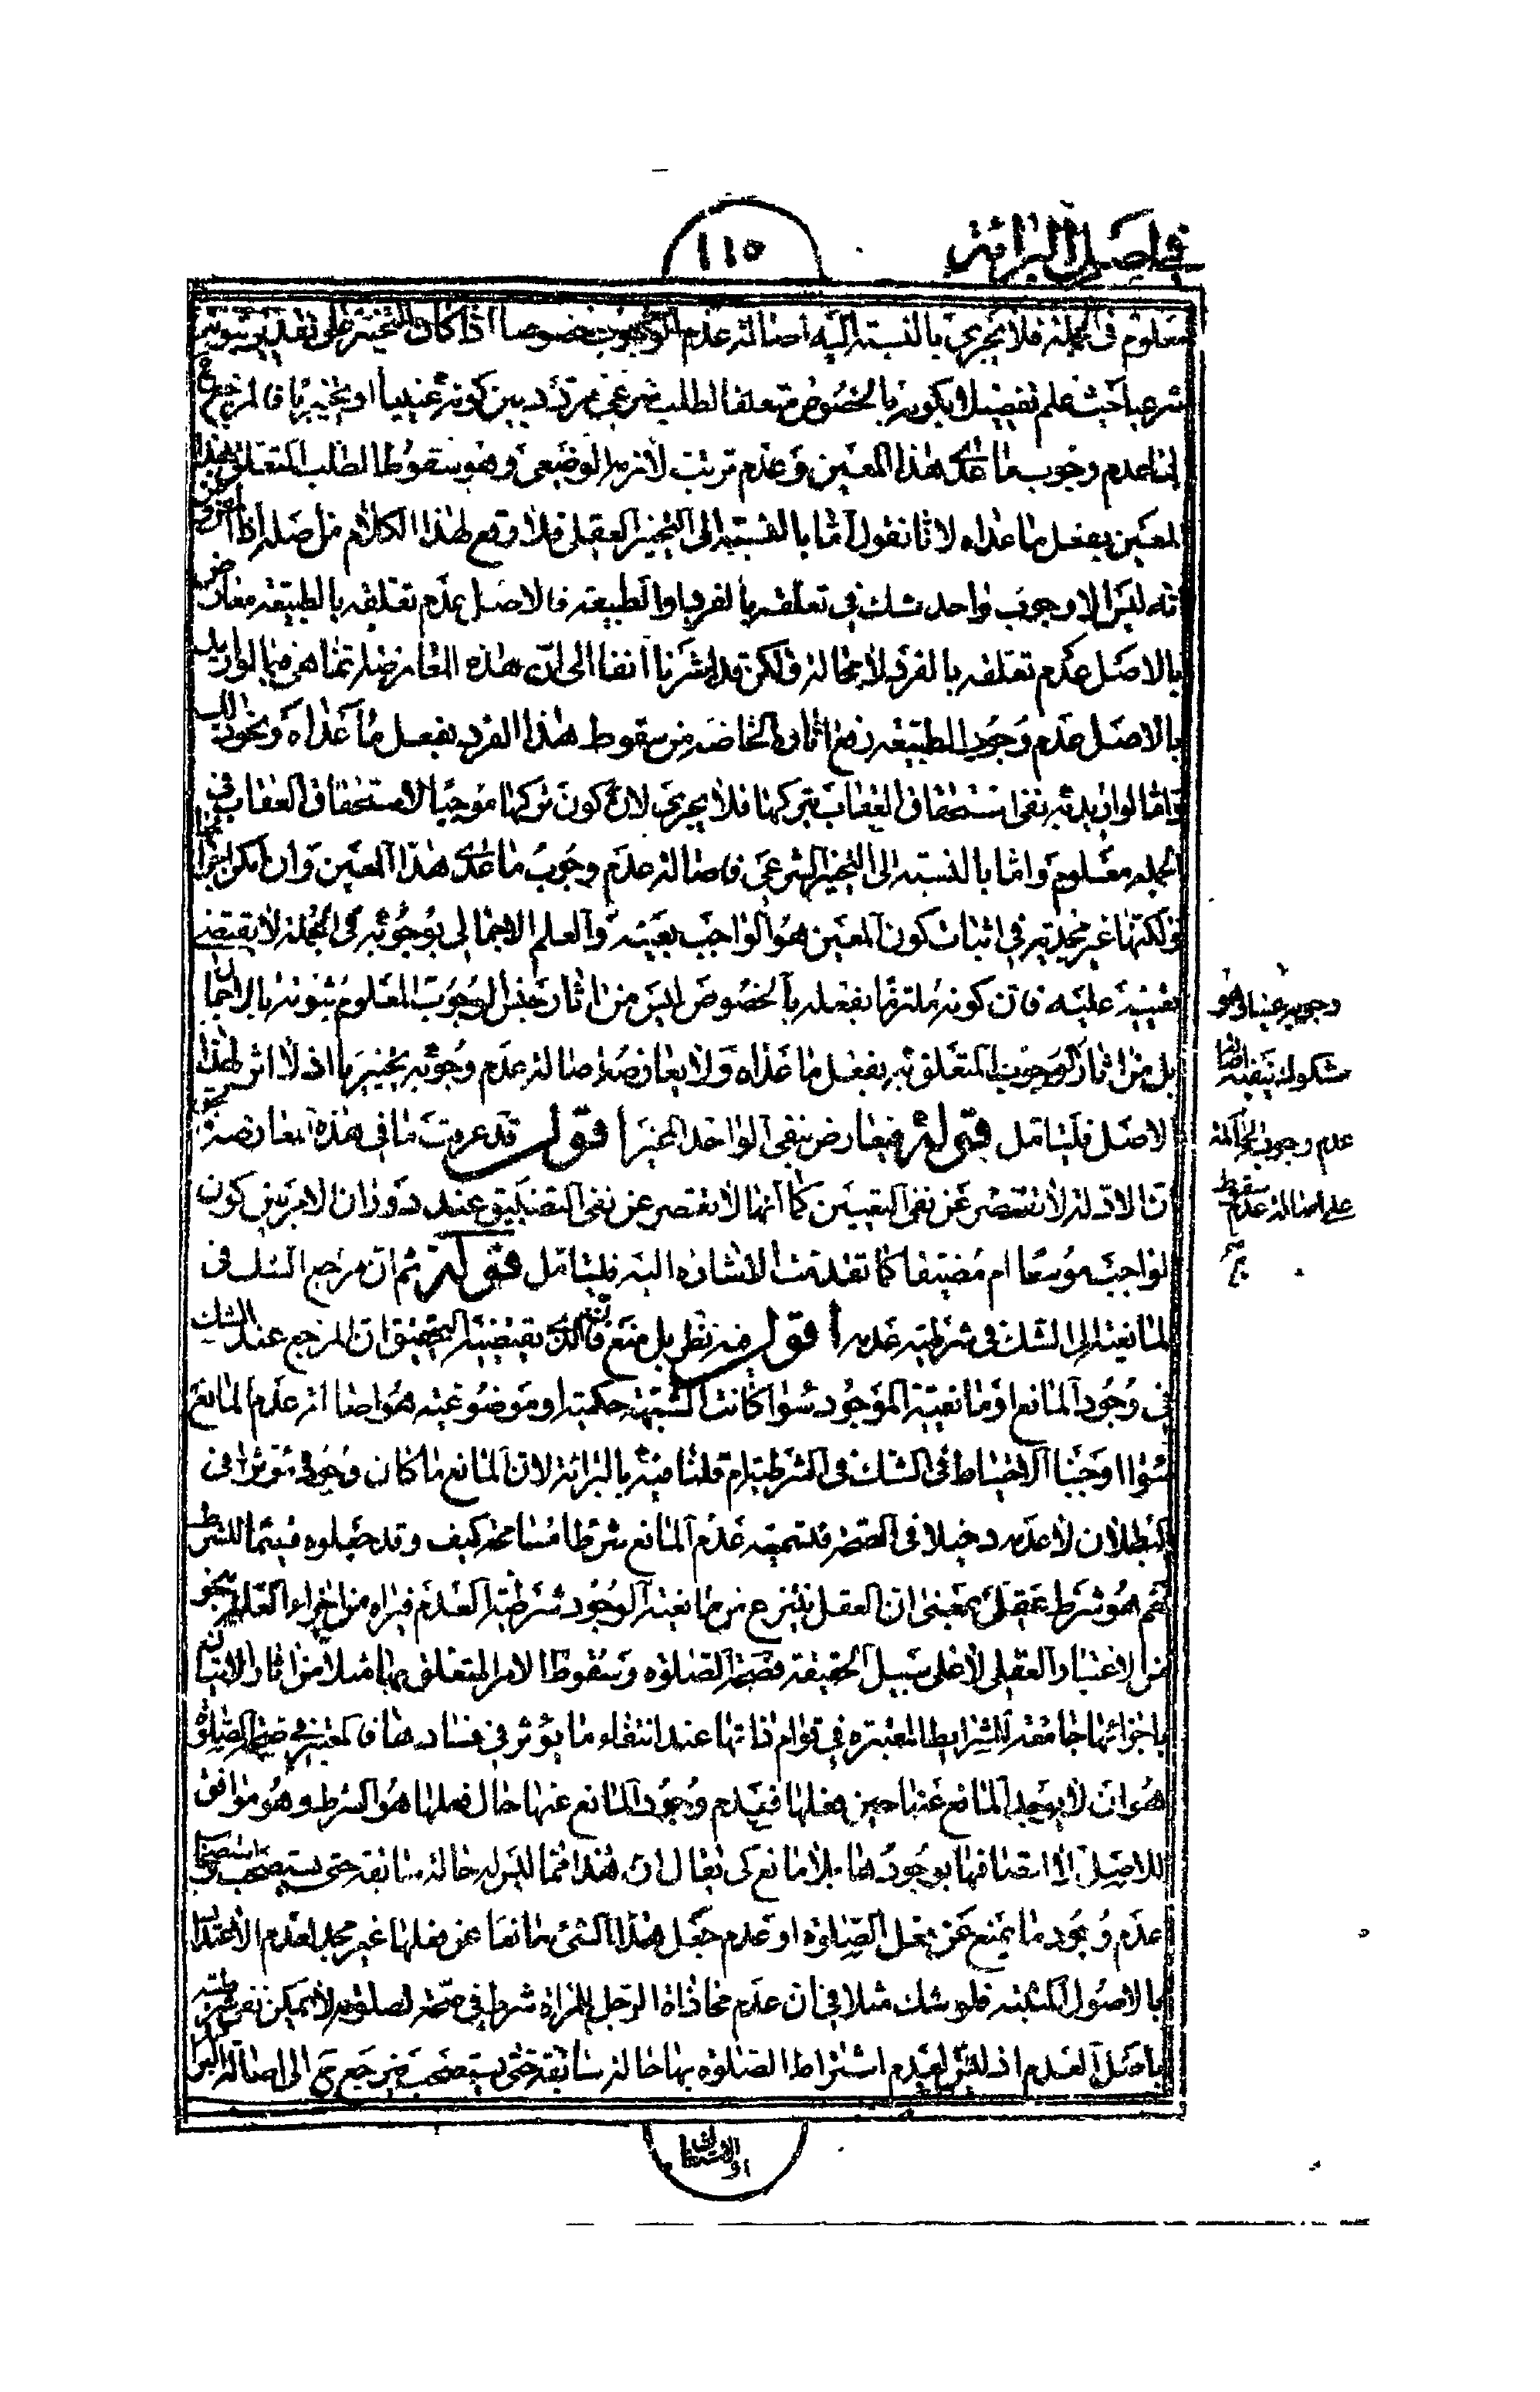 في اصل البرائة
١١٥
معلوم في الجملة فلا يجري بالنسبة اليه اصالة عدم الوجوب خصوصا اذا كان التخيير على تقدير ثبوته
شرعيا حيث علم تفصيلا بكونه بالخصوص متعلقا لطلب شرعي مردد بين كونه عينيا او تخييريا فالمرجع ح
انما عدم وجوب ما عدى هذا المعين وعدم ترتب لازمه الوضعي وهو سقوط الطلب المتعلق بهذا
المعين بفعل ما عداه لانا نقول اما بالنسبة الى التخيير العقلي فلا وقع لهذا الكلام من اصله اذ المفروض
انه ليس الا وجوب واحد شك في تعلقه بالفرد او الطبيعة فالاصل عدم تعلقه بالطبيعة معارض
بالاصل عدم تعلقه بالفرد لا محالة ولكن قد اشرنا آنفا الى ان هذه المعارضة تماهي فيما لو اريد
بالاصل عدم وجود الطبيعة رفع اثاره الخاصة من سقوط هذا الفرد بفعل ما عداه ونحو ذلك
واما لو اريد به نفي استحقاق العقاب بتركها فلا يجري لان كون تركها موجبا لاستحقاق العقاب في
الجملة معلوم واما بالنسبة الى التخيير الشرعي فاصالة عدم وجوب ما عدى هذا المعين وان امكن اجرائها
ولكنها غير مجدية في اثبات كون المعين هو الواجب بعينه والعلم الاجمالي بوجوبه في الجملة لا يقتضي
تعيينه عليه فان كونه ملتزما بفعله بالخصوص ليس من اثار جنس الوجوب المعلوم ثبوته بالاجمال
بل من اثار الوجوب المتعلق به بفعل ما عداه ولا يعارضه اصالة عدم وجوبه تخييريا اذ لا اثر لهذا
الاصل فليتامل قوله فيعارض بنفي الواحد المخير اقول قد عرفت ما في هذه المعارضة
ان الادلة لا تقتصر عن نفي التعيين كما انها لا تقتصر عن نفي التضييق عند دوران الامر بين كون
الواجب موسعا ام مضيقا كما تقدمت الاشارة اليه فليتامل قوله ثم ان مرجع الشك في
المانعية الى الشك في شرطية عدمه اقول فيه نظر بل منع فان الذي يقتضيه التحقيق ان المرجع عند الشك
في وجود المانع او مانعية الموجود سواء كانت الشبهة حكمية او موضوعية هو اصالة عدم المانع
سواء اوجبنا الاحتياط في الشك في الشرطية ام قلنا فيه بالبرائة لان المانع ما كان وجوده مؤثرا في
البطلان لا عدمه دخيلا في الصحة فتسميته عدم المانع شرطا مسامحة كيف وقد جعلوه قسيما للشرط
نعم هو شرط عقلي بمعنى ان العقل ينتزع من مانعية الوجود شرطية العدم فيراه من اجزاء العلة بنحو
من الاعتبار العقلي لا على سبيل الحقيقة فصحة الصلوة وسقوط الامر المتعلق بها مثلا من اثار الاتيان
باجزائها جامعة للشرايط المعتبرة في قوام ذاتها عند انتفاء ما يؤثر في فسادها فالمعتبر في صحة الصلوة
هو ان لا يوجد المانع عنها حين فعلها فعدم وجود المانع عنها حال فعلها هو الشرط وهو موافق
للاصل لا اتصافها بوجودها بلا مانع كي يقال ان هذا مما ليس له حالة سابقة حتى يستصحب واستصحاب
عدم وجود ما يمنع عن فعل الصلوة او عدم جعل هذا الشئ مانعا عن فعلها غير مجد لعدم الاعتداد
بالاصول المثبتة فلو شك مثلا في ان عدم محاذاة الرجل للمراة شرط في صحة الصلوة لا يمكن نفي شرطيته
باصل العدم اذ ليس لعدم اشتراط الصلوة بها حالة سابقة حتى يستصحب فيرجع ح الى اصالة البرائة
او الاشتغال
وجوبه عينا وهو
مشكوك فينفيه اصالة
عدم وجوبه الحاكمة
على اصالة عدم سقوط
صح